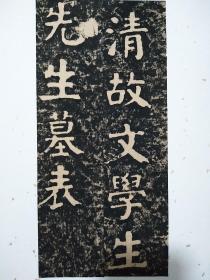 清故文學生
先生墓表